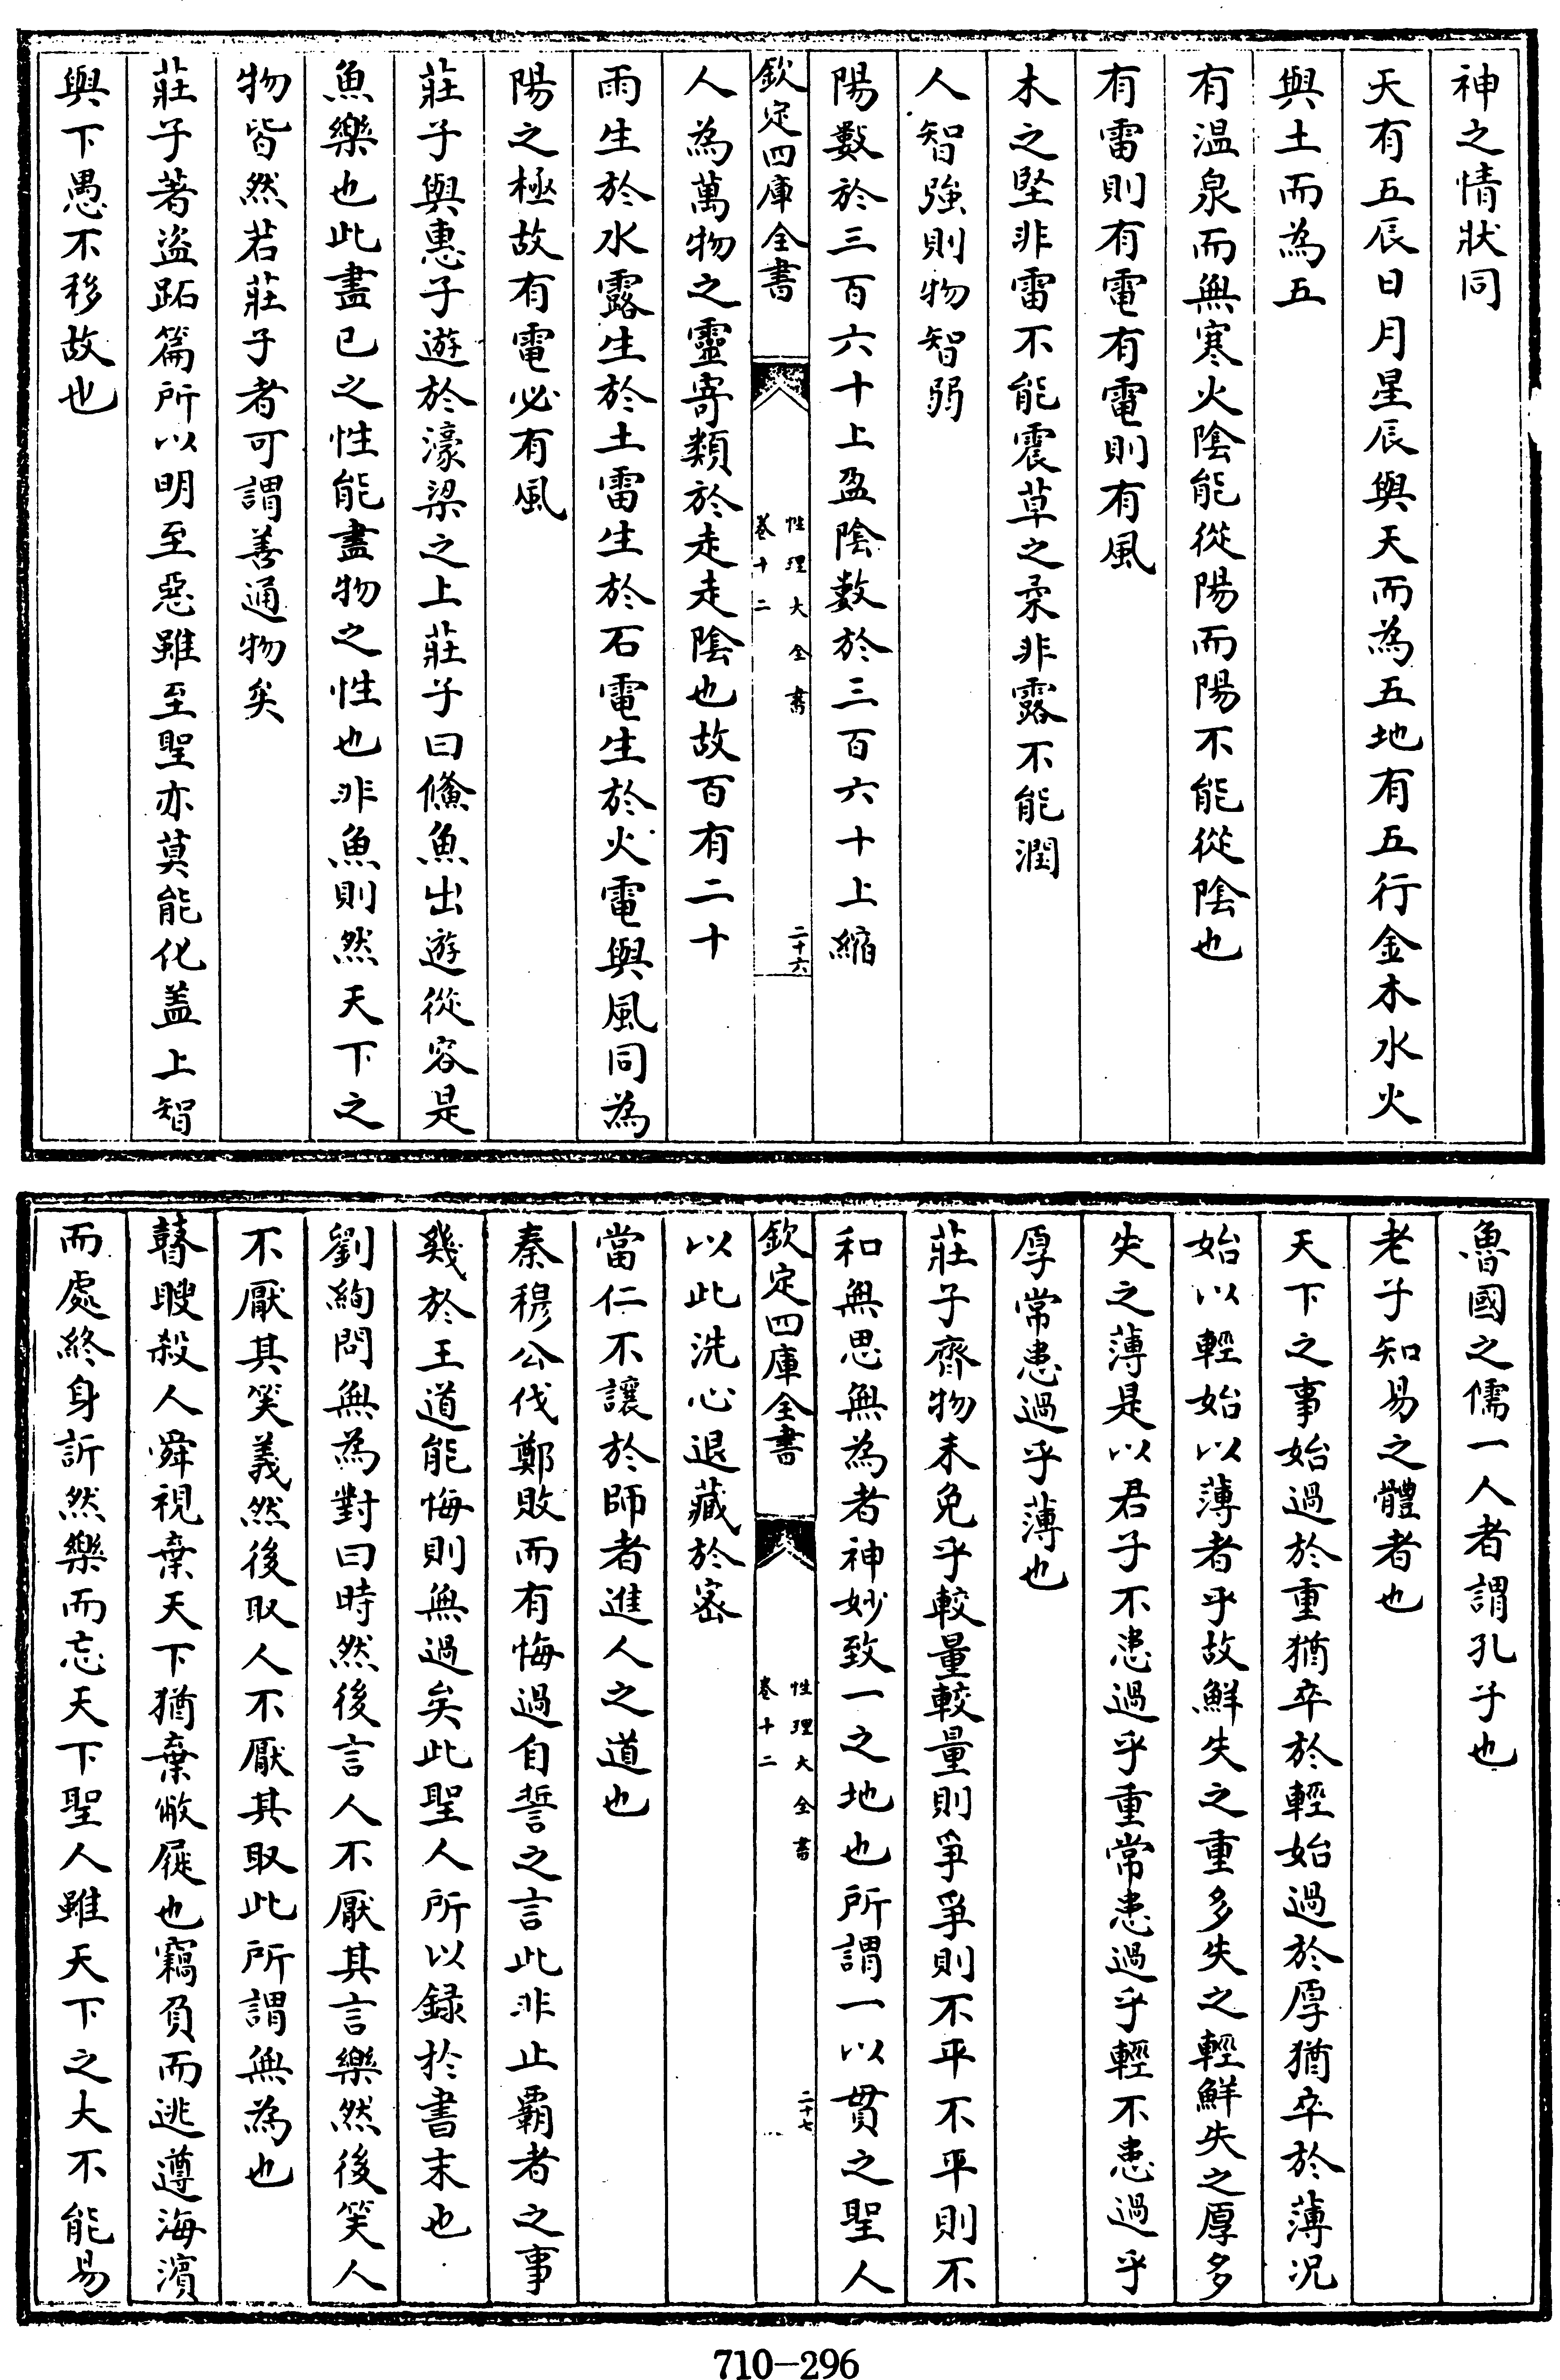 神之情狀同
天有五辰日月星辰與天而為五地有五行金木水火
與土而為五
有温泉而無寒火陰能從陽而陽不能從陰也
有雷則有電有電則有風
木之堅非雷不能震草之柔非露不能潤
人智強則物智弱
陽數於三百六十上盈陰數於三百六十上縮
欽定四庫全書
性理大全書
卷十二
二十六
人為萬物之靈寄類於走走陰也故百有二十
雨生於水露生於土雷生於石電生於火電與風同為
陽之極故有電必有風
莊子與惠子遊於濠梁之上莊子曰鯈魚出遊從容是
魚樂也此盡已之性能盡物之性也非魚則然天下之
物皆然若莊子者可謂善通物矣
莊子著盗跖篇所以明至惡雖至聖亦莫能化盖上智
與下愚不移故也
魯國之儒一人者謂孔子也
老子知易之體者也
天下之事始過於重猶卒於輕始過於厚猶卒於薄况
始以輕始以薄者乎故鮮失之重多失之輕鮮失之厚多
失之薄是以君子不患過乎重常患過乎輕不患過乎
厚常患過乎薄也
莊子齊物未免乎較量較量則爭爭則不平不平則不
和無思無為者神妙致一之地也所謂一以貫之聖人
欽定四庫全書
性理大全書
卷十二
二十七
以此洗心退藏於宻
當仁不讓於師者進人之道也
秦穆公伐鄭敗而有悔過自誓之言此非止霸者之事
幾於王道能悔則無過矣此聖人所以録於書末也
劉絢問無為對曰時然後言人不厭其言樂然後笑人
不厭其笑義然後取人不厭其取此所謂無為也
瞽瞍殺人舜視棄天下猶棄敝屣也竊負而逃遵海濱
而處終身訢然樂而忘天下聖人雖天下之大不能易
710-296